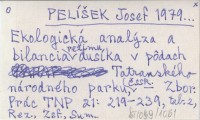 PELÍŠEK Josef 1979...
Ekologická analýza a
bilancia režimu dusíka v pôdach
Tatranského
národného parku, ČSSR. Zbor.
Prác TNP 21: 219-239, tel. 2,
Rez., Zsf., Sum.